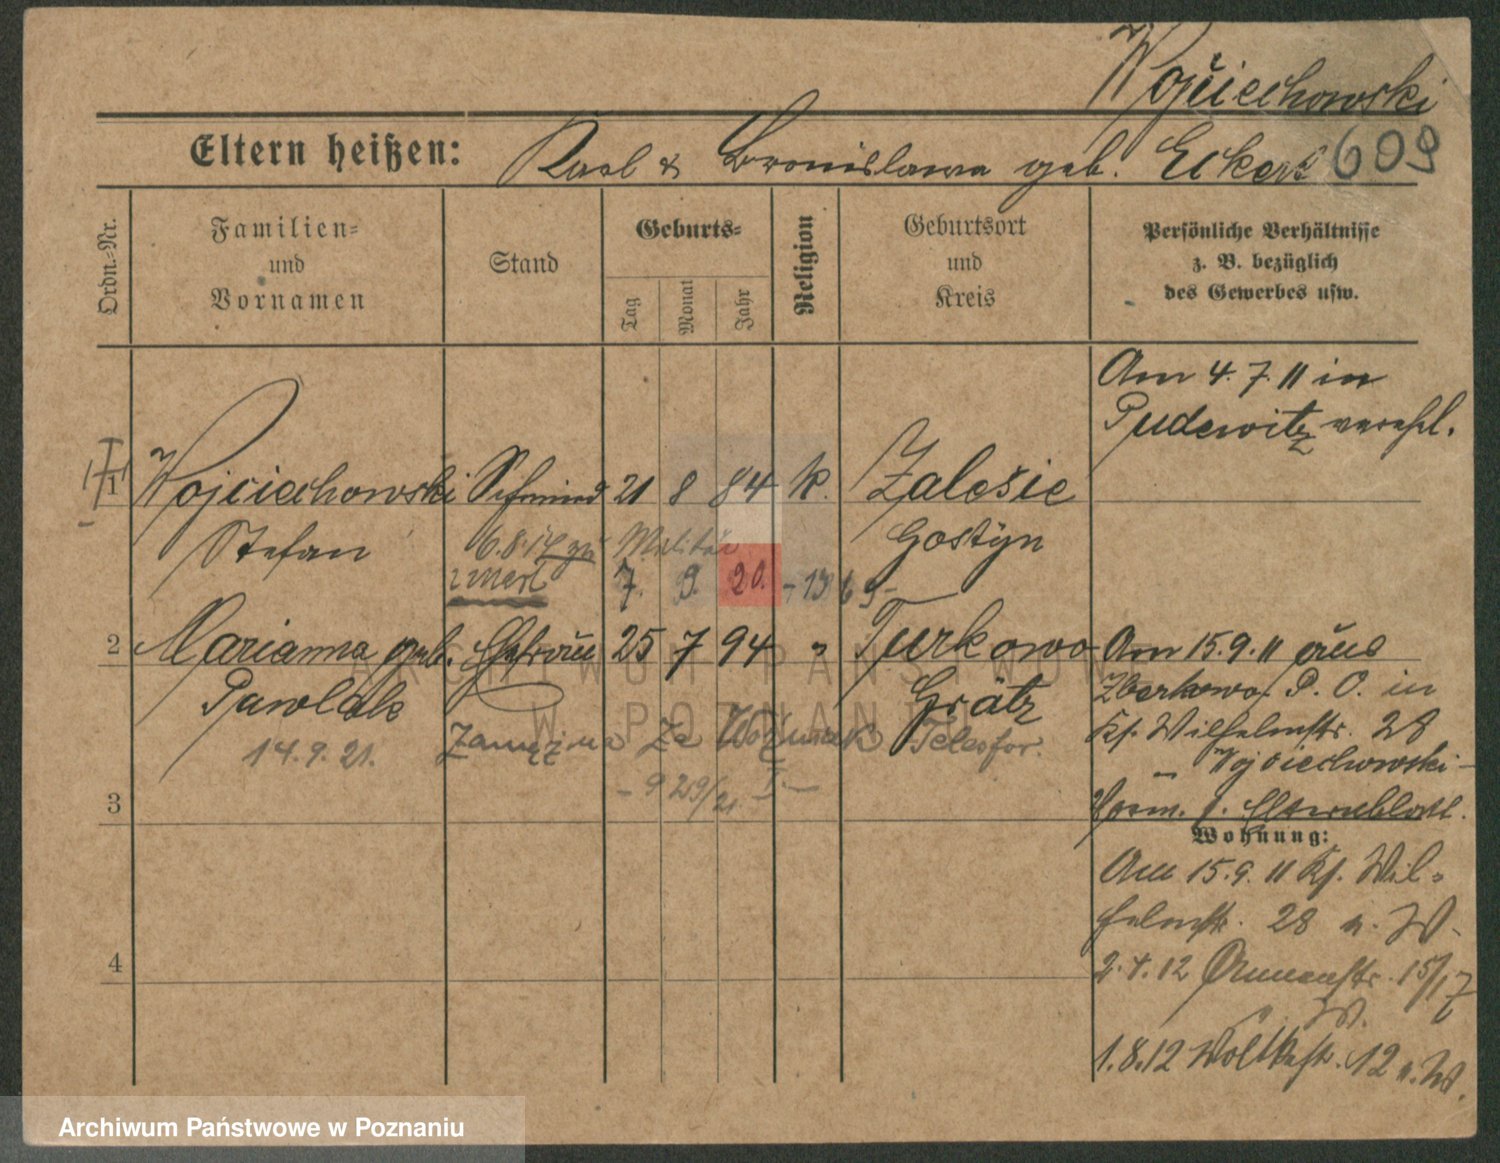 Wojciechowski
609
Eltern heißen: Karl & Bronislawa geb. Eckert
Ordn.-Nr.
Familien-
und
Vornamen
Stand
Geburts-
Tag
Monat
Jahr
Religion
Geburtsort
und
Kreis
Persönliche Verhältnisse
z. B. bezüglich
des Gewerbes usw.
Am 4.7.11 in
Pudewitz verehl.
1 Wojciechowski Schmied 21 8 84 k. Zalesie
Stefan 6.8.14 zu Militär Gostyn
zmarł 7. 9. 20.
2 Marianna geb. Ehefrau 25 7 94 " Turkowo
Pawlak Grätz
14.9.21. Zamężna za Telesfor.
Am 15.9.11 aus
P. O. in
Kf. Wilhelmstr. 28
Wojciechowski
3
Wohnung:
Am 15.9.11 Kf. Wil-
helmstr. 28 n. W.
4
2.4.12 15/17
W.
1.8.12 12 n. W.
ARCHIWUM PAŃSTWOWE
W POZNANIU
Archiwum Państwowe w Poznaniu